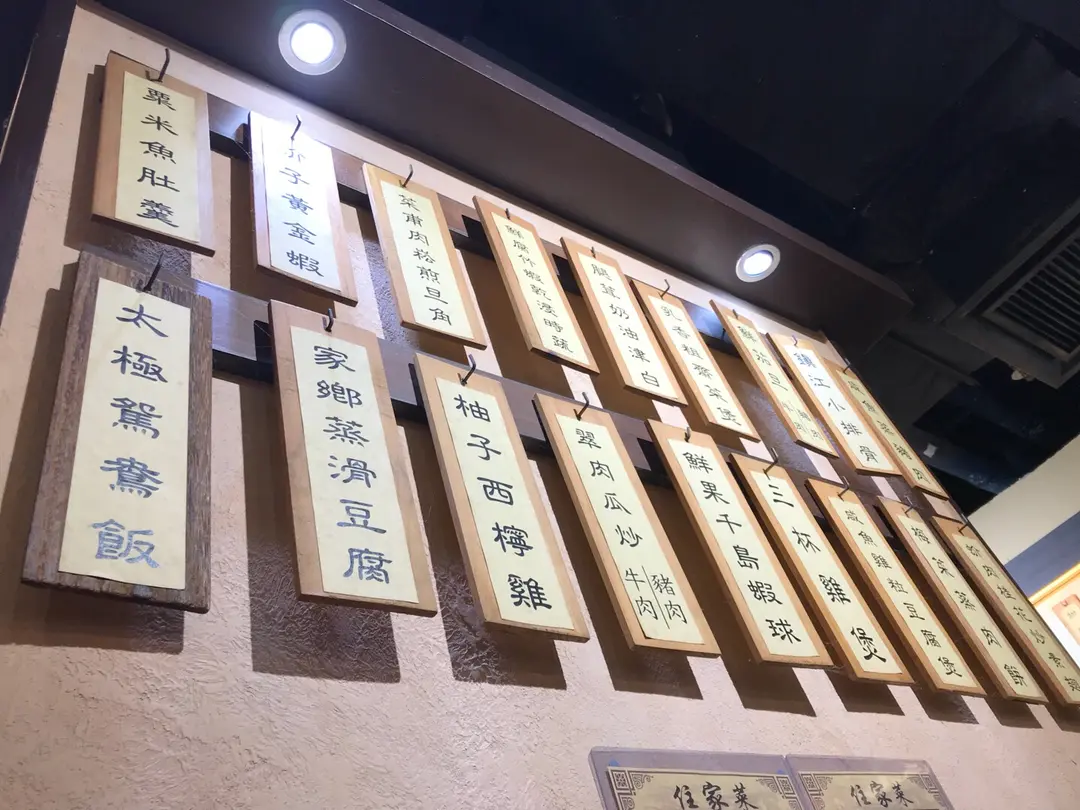 粟米魚肚羹
子黃金蝦
菜甫肉崧煎旦角
鮮腐竹蝦乾浸時蔬
奶油津白
乳香粗齋菜煲
鎮江小排骨
太極鴛鴦飯
家鄉蒸滑豆腐
柚子西檸雞
翠肉瓜炒
牛肉
豬肉
鮮果千島蝦球
三杯雞煲
咸魚雞粒豆腐煲
梅菜蒸肉餅
桂花炒
住家菜
住家菜